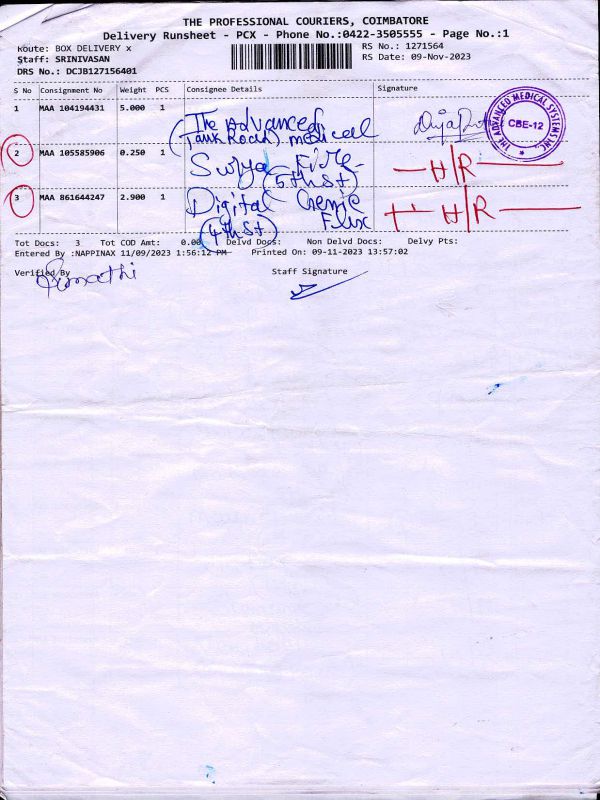 THE PROFESSIONAL COURIERS, COIMBATORE
Delivery Runsheet - PCX - Phone No.:0422-3505555 - Page No.:1
Route: BOX DELIVERY x
RS No.: 1271564
Staff: SRINIVASAN
RS Date: 09-Nov-2023
DRS No.: DCJB127156401
S No Consignment No Weight PCS Consignee Details Signature
1 MAA 104194431 5.000 1 The Advanced
(Tank Road) medical
THE ADVANCED MEDICAL SYSTEMS INC.
CBE-12
2 MAA 105585906 0.250 1 Surya Fire
(5th St)
H/R
3 MAA 861644247 2.900 1 Digital Flex
(4th St)
H/R
Tot Docs: 3 Tot COD Amt: 0.00 Delvd Docs: Non Delvd Docs: Delvy Pts:
Entered By :NAPPINAX 11/09/2023 1:56:12 PM Printed On: 09-11-2023 13:57:02
Verified By Staff Signature